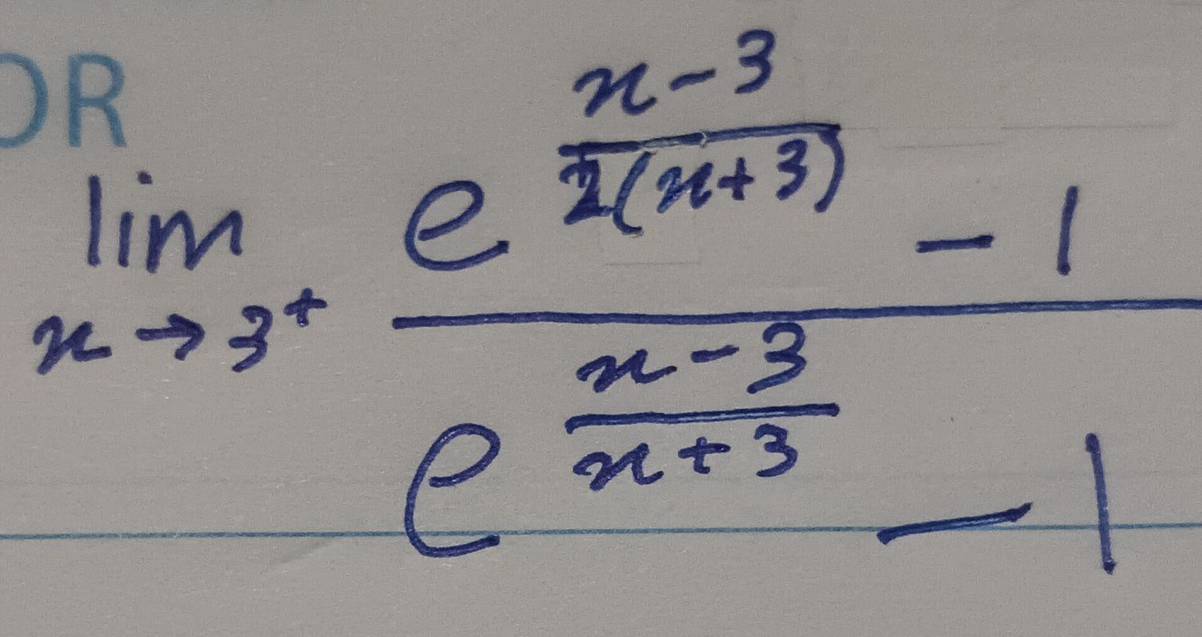 OR
lim x→3⁺ (e^((x-3)/(2(x+3))) - 1) / (e^((x-3)/(x+3)) - 1)